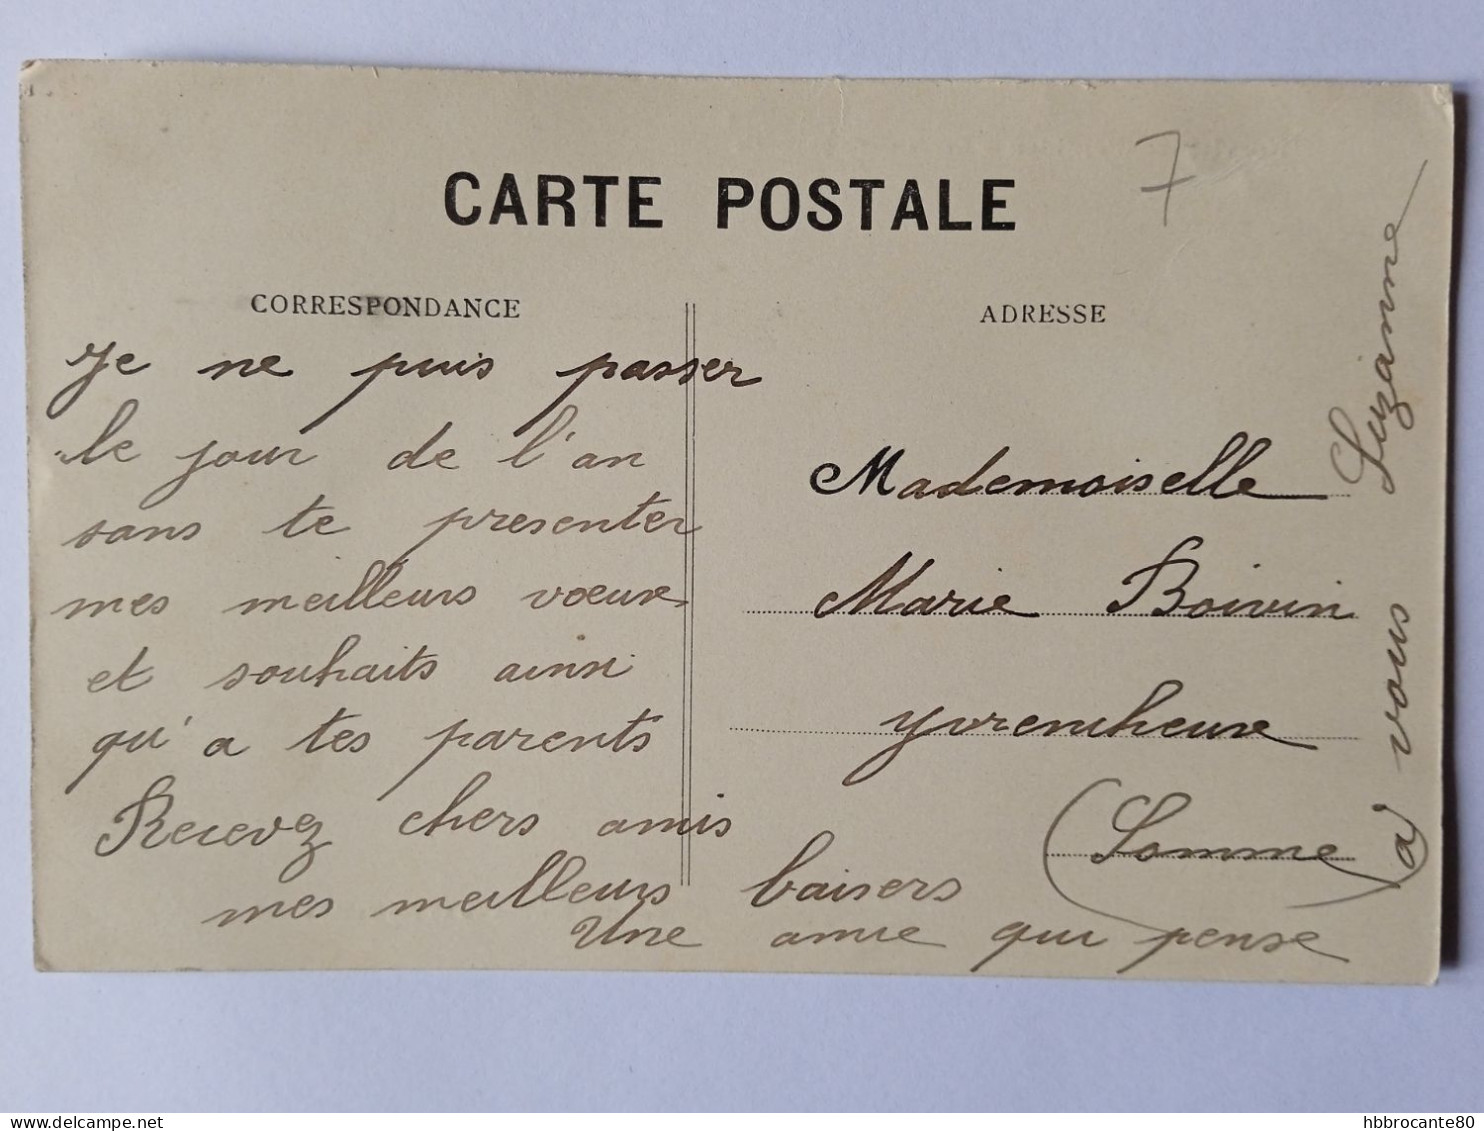 CARTE POSTALE
7
CORRESPONDANCE
Je ne puis passer
le jour de l'an
sans te presenter
mes meilleurs voeux
et souhaits ainsi
qu'a tes parents
Recevez chers amis
mes meilleurs baisers
Une amie qui pense
à vous Suzanne
ADRESSE
Mademoiselle
Marie Boivin
Yvrencheux
(Somme)
hbbrocante80